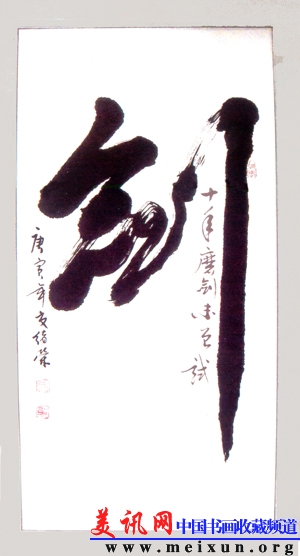 剑
十年磨剑未曾試
庚寅年
美讯网 中国书画收藏频道
www.meixun.org